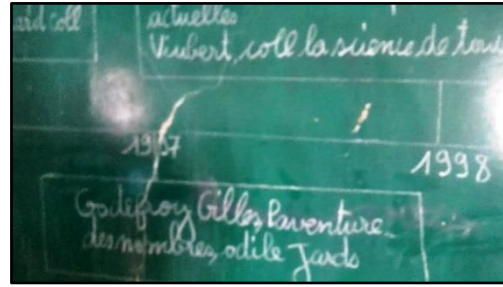 ard coll
actuelles
Vuibert, coll la science de tous
1997
1998
Godefroy Gilles, l'aventure
des nombres, odile Jacob